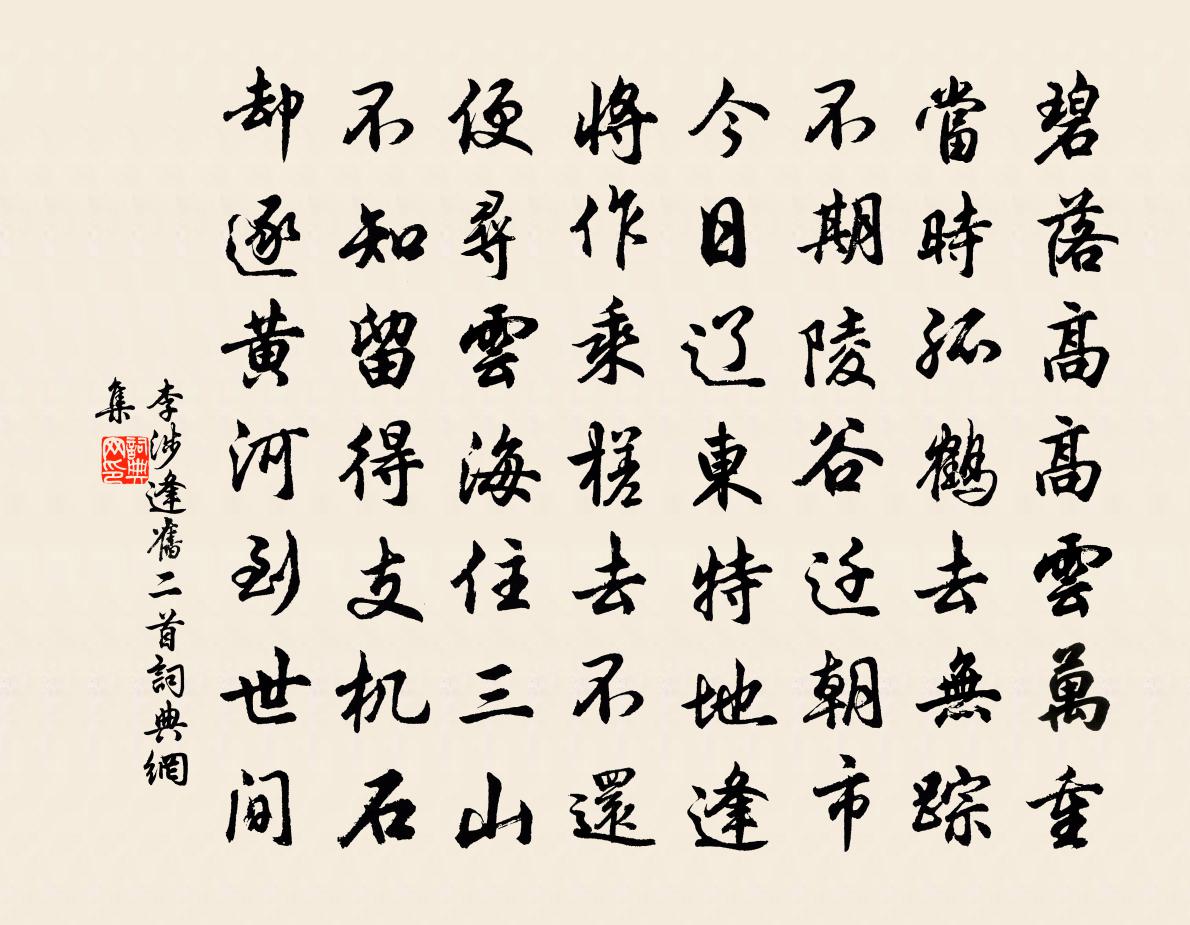 碧落高高雲萬重
當時孤鶴去無踪
不期陵谷迁朝市
今日辽東特地逢
將作乘槎去不還
便尋雲海住三山
不知留得支机石
却逐黄河到世間
李涉逢舊二首詞典網
集
詞典
网印